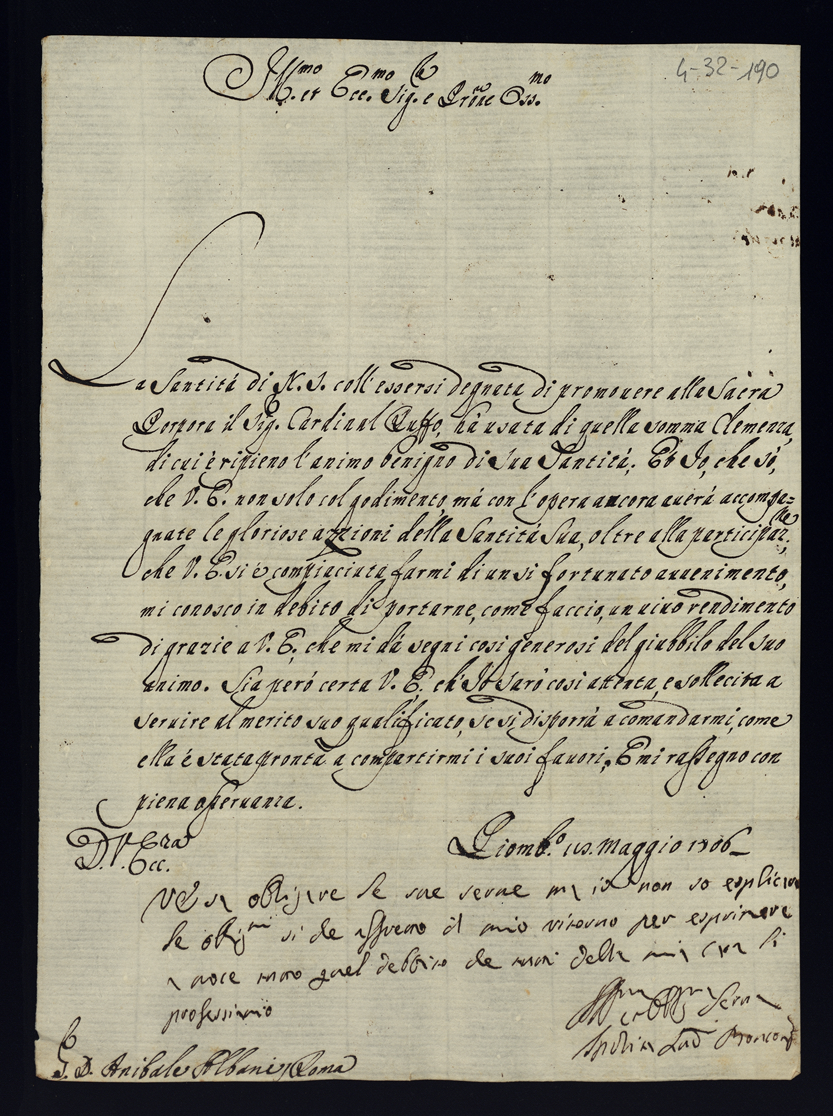 4-32-190
Ill.mo et Ecc.mo Sig.r e Prone Oss.mo
La Santità di N. S. coll'essersi degnata di promouere alla Sacra
Porpora il Sig. Cardinal Ruffo, hà usata di quella somma Clemenza,
di cui è ripieno l'animo benigno di Sua Santità. Et Io, che sò,
che V. E. non solo col godimento, mà con l'opera ancora auerà accompa=
gnate le gloriose azzioni della Santità Sua, oltre alla participaz.ne,
che V. E. si è compiaciuta farmi di un sì fortunato auuenimento,
mi conosco in debito di portarne, come faccio, un viuo rendimento
di grazie a V. E. che mi dà segni così generosi del giubbilo del suo
animo. Sia però certa V. E. ch'Io sarò così attenta, e sollecita a
seruire al merito suo qualificato, se si disporrà a comandarmi, come
ella è stata pronta a compartirmi i suoi fauori, E mi rassegno con
piena osseruanza.
D. V. Ecc.za
Piomb.o Maggio 1706
VE sa obligare le sue serue ma io non so esplicare
le obig.ni si che il mio ritorno per esprimere
a uoce quel debbito che della mia Casa li
professiamo
Serua
S. D. Anibale Albani, Roma